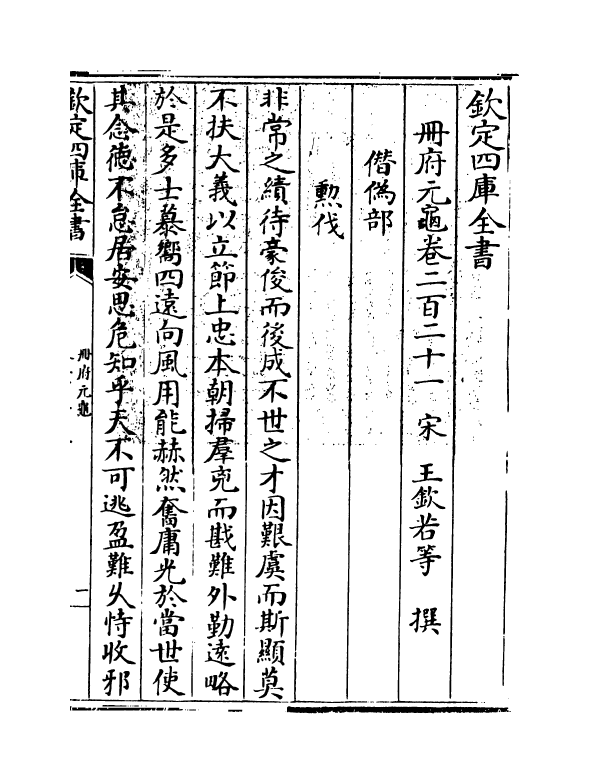 欽定四庫全書
冊府元龜卷二百二十一　宋　王欽若等　撰
僭偽部
勲伐
非常之績待豪俊而後成不世之才因艱虞而斯顯莫
不扶大義以立節上忠本朝掃羣兇而戡難外勤遠略
於是多士慕嚮四遠向風用能赫然奮庸光於當世使
其念德不怠居安思危知乎天不可逃盈難乆恃收邪
欽定四庫全書
冊府元龜